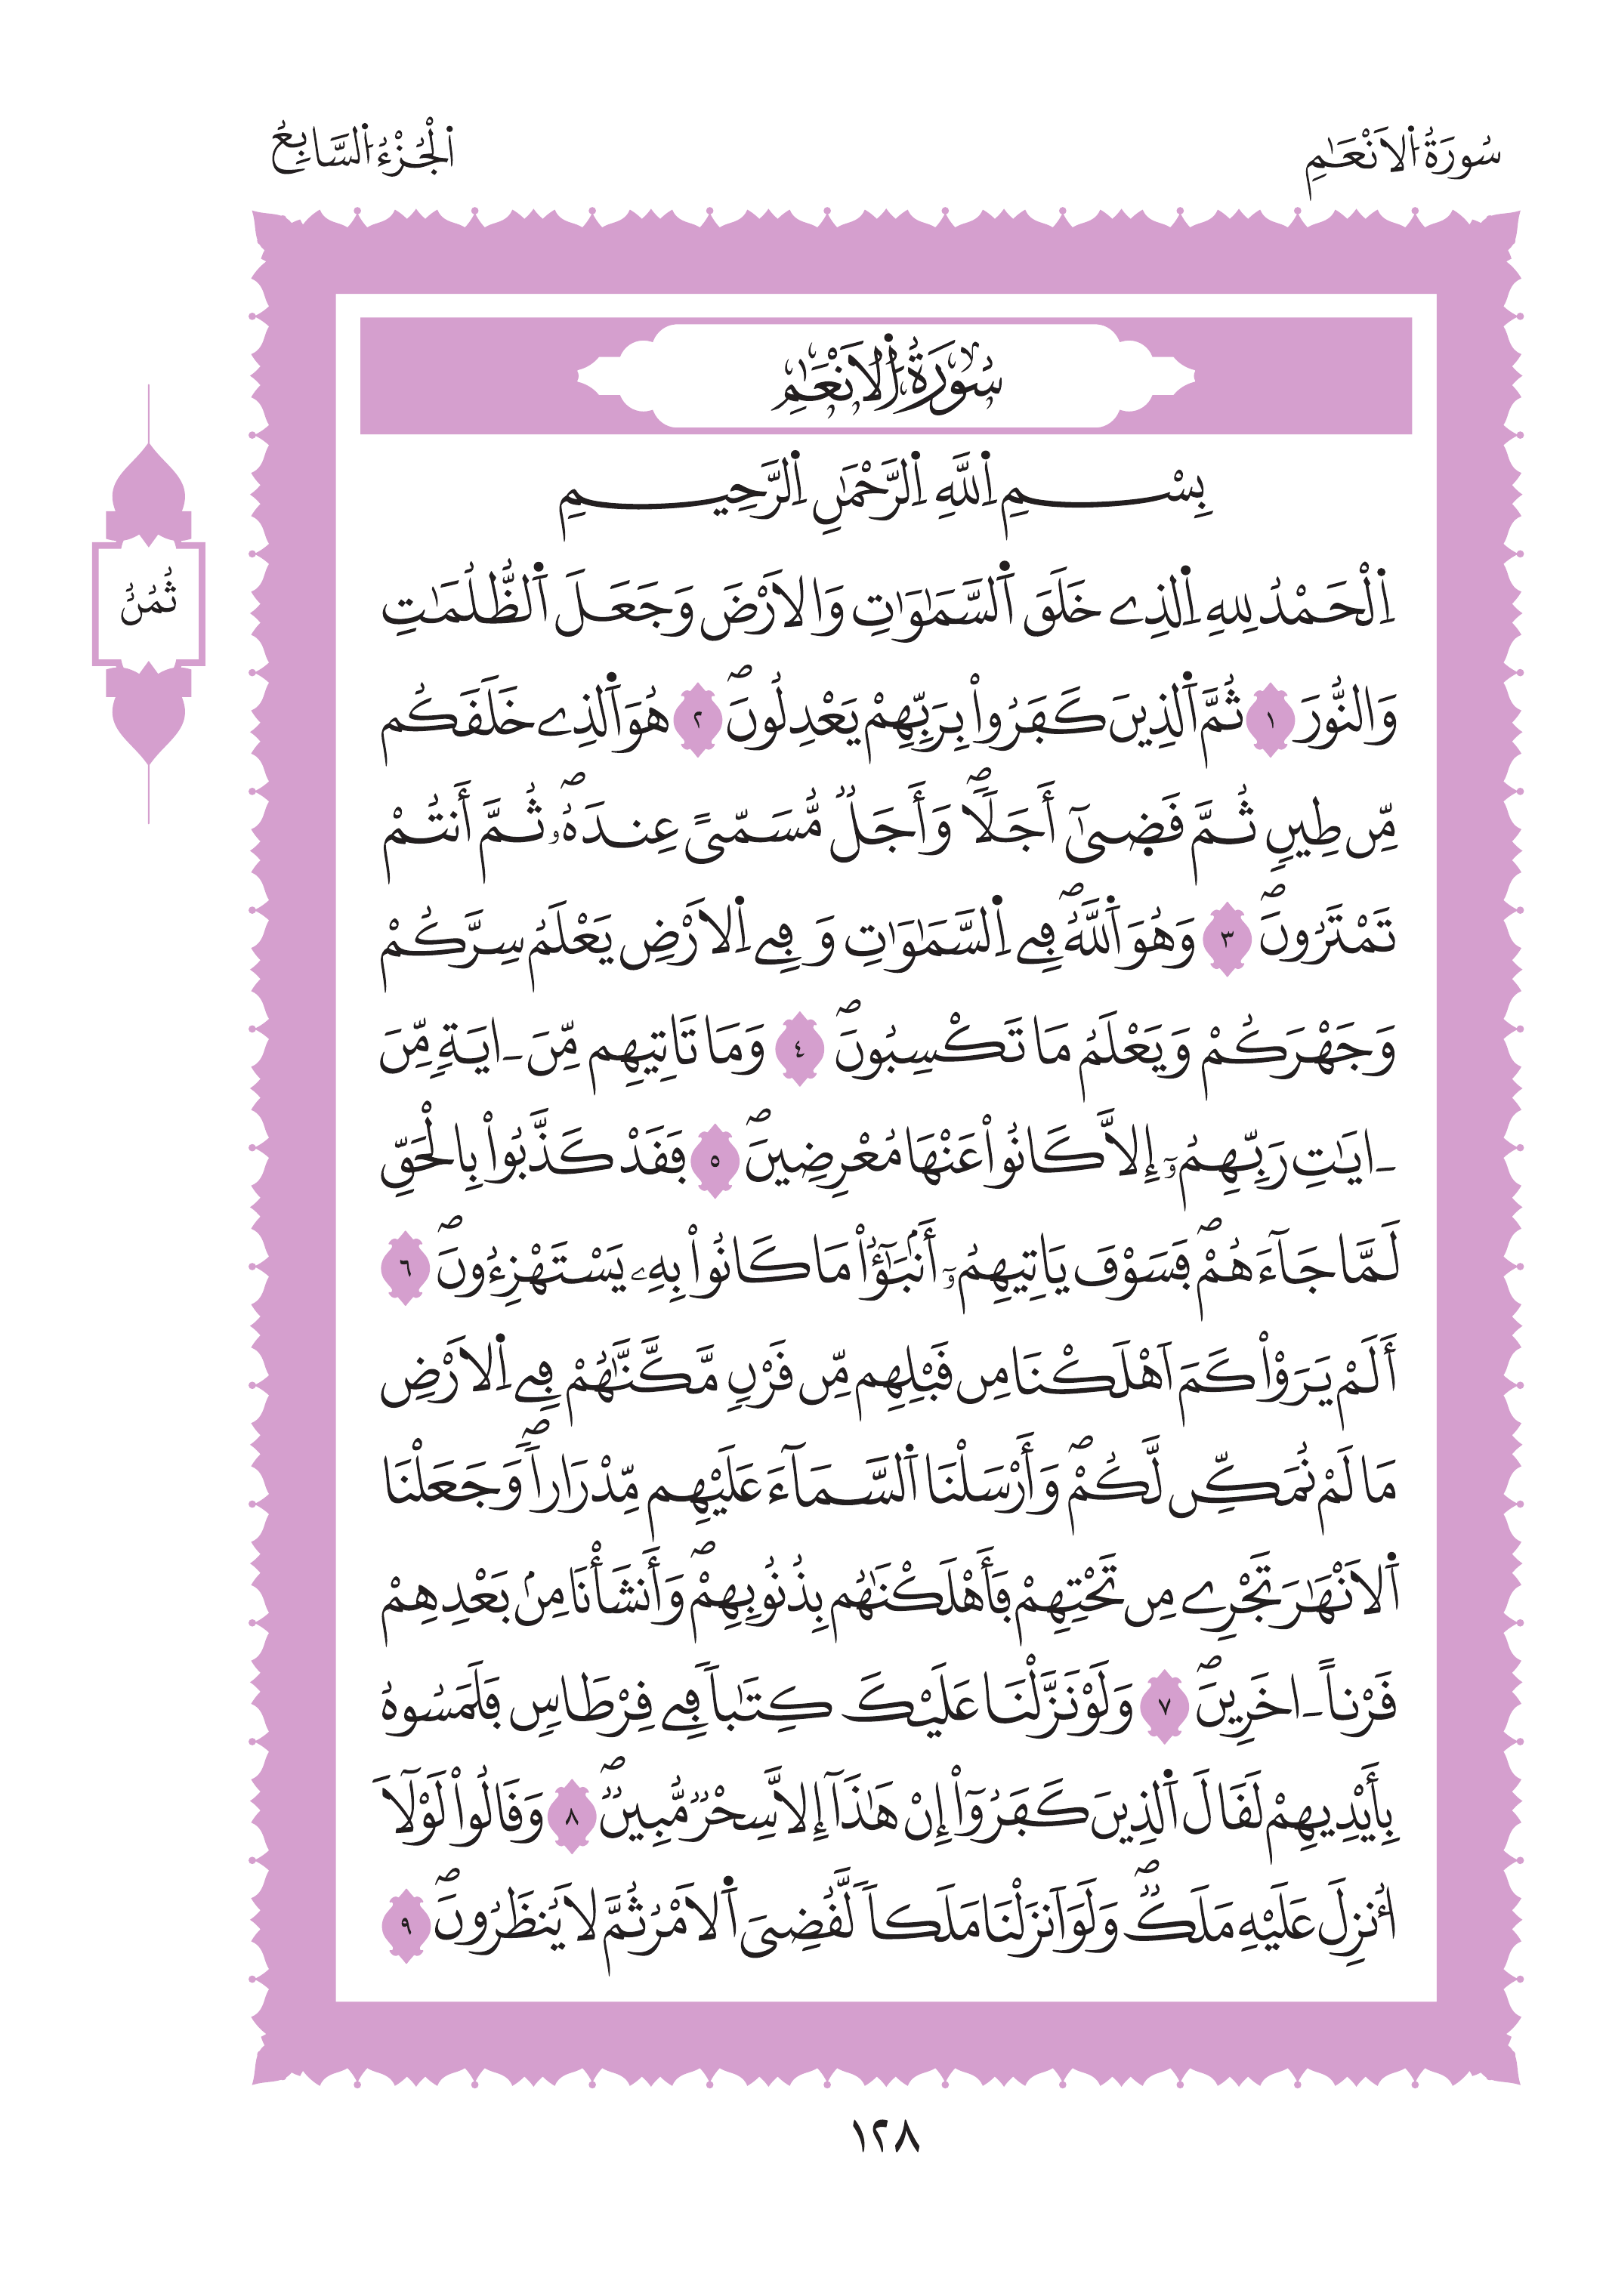 سُورَةُ اُ۬لَانْعَٰمِ
اَ۬لْجُزْءُ اُ۬لسَّابِعُ
سُورَةُ اُ۬لَانْعَٰمِ
ثُمُنُ
بِسْمِ اِ۬للَّهِ اِ۬لرَّحْمَٰنِ اِ۬لرَّحِيمِ
اِ۬لْحَمْدُ لِلهِ اِ۬لذِے خَلَقَ اَ۬لسَّمَٰوَٰتِ وَالَارْضَ وَجَعَلَ اَ۬لظُّلُمَٰتِ
وَالنُّورَ ١ ثُمَّ اَ۬لذِينَ كَفَرُواْ بِرَبِّهِمْ يَعْدِلُونَۖ ٢ هُوَ اَ۬لذِے خَلَقَكُم
مِّن طِينٖ ثُمَّ قَض۪ىٰٓ أَجَلاٗۖ وَأَجَلٞ مُّسَمّىً عِندَهُۥۖ ثُمَّ أَنتُمْ
تَمْتَرُونَۖ ٣ وَهُوَ اَ۬للَّهُۖ فِے اِ۬لسَّمَٰوَٰتِ وَفِے اِ۬لَارْضِ يَعْلَمُ سِرَّكُمْ
وَجَهْرَكُمْ وَيَعْلَمُ مَا تَكْسِبُونَۖ ٤ وَمَا تَاتِيهِم مِّنَ ـ ايَةٖ مِّنَ
ـ ايَٰتِ رَبِّهِمُۥٓ إِلاَّ كَانُواْ عَنْهَا مُعْرِضِينَۖ ٥ فَقَدْ كَذَّبُواْ بِالْحَقِّ
لَمَّا جَآءَهُمْۖ فَسَوْفَ يَاتِيهِمُۥٓ أَنۢبَٰٓؤُاْ مَا كَانُواْ بِهِۦ يَسْتَهْزِءُونَۖ ٦
أَلَمْ يَرَوْاْ كَمَ اَهْلَكْنَا مِن قَبْلِهِم مِّن قَرْنٖ مَّكَّنَّٰهُمْ فِے اِ۬لَارْضِ
مَا لَمْ نُمَكِّن لَّكُمْۖ وَأَرْسَلْنَا اَ۬لسَّمَآءَ عَلَيْهِم مِّدْرَاراٗۖ وَجَعَلْنَا
اَ۬لَانْهَٰرَ تَجْرِے مِن تَحْتِهِمْ فَأَهْلَكْنَٰهُم بِذُنُوبِهِمْۖ وَأَنشَأْنَا مِنۢ بَعْدِهِمْ
قَرْناً ـ اخَرِينَۖ ٧ وَلَوْ نَزَّلْنَا عَلَيْكَ كِتَٰباٗ فِے قِرْطَاسٖ فَلَمَسُوهُ
بِأَيْدِيهِمْ لَقَالَ اَ۬لذِينَ كَفَرُوٓاْ إِنْ هَٰذَآ إِلاَّ سِحْرٞ مُّبِينٞۖ ٨ وَقَالُواْ لَوْلَآ
أُنزِلَ عَلَيْهِ مَلَكٞۖ وَلَوَ اَنزَلْنَا مَلَكاٗ لَّقُضِيَ اَ۬لَامْرُ ثُمَّ لَا يُنظَرُونَۖ ٩
١٢٨